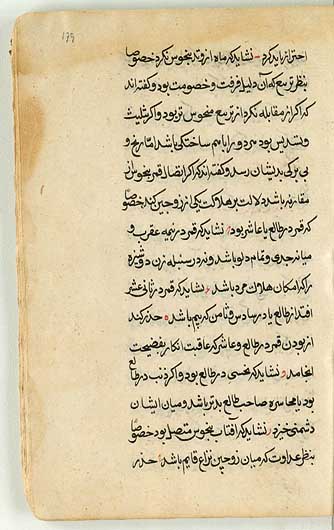 ۱۳۹
احتراز باید کرد نشاید که ماه از وتد بنحوس نکرد خصوصا
بنظر تربیع که آن دلیل فرقت و خصومت بود و کفته اند
که اکر از مقابله نکرد از تربیع منحوس تر بود و اکر تثلیث
و تسدیس بود مرد و را باهم ساختکی باشد اما رنج و
بی برکی بدیشان رسد و کفته اند که اکر اتصال قمر بنحوس از
مقارنه باشد دلالت بر هلاکت یکی از زوجین کند خصوصا
که قمر در طالع یا عاشر بود نشاید که قمر در نیمه عقرب و
میانه جدی و تمام دلو باشد و نه در سنبله زن دوشیزه
را که امکان هلاک مرد باشد نشاید که قمر در ثانی عشر
افتد از طالع یا در سادس و ثامن که بیم باشد حذر کند
از بودن قمر در طالع و عاشر که عاقبت انکار بفضیحت
انجامد و نشاید که نحسی در طالع بود و اکر ذنب در طالع
بود یا محاسره صاحب طالع بدتر باشد و میان ایشان
دشمنی خیزد نشاید که آفتاب بنحوس متصل بود خصوصا
بنظر عداوت که میان زوجین نزاع قایم باشد حذر